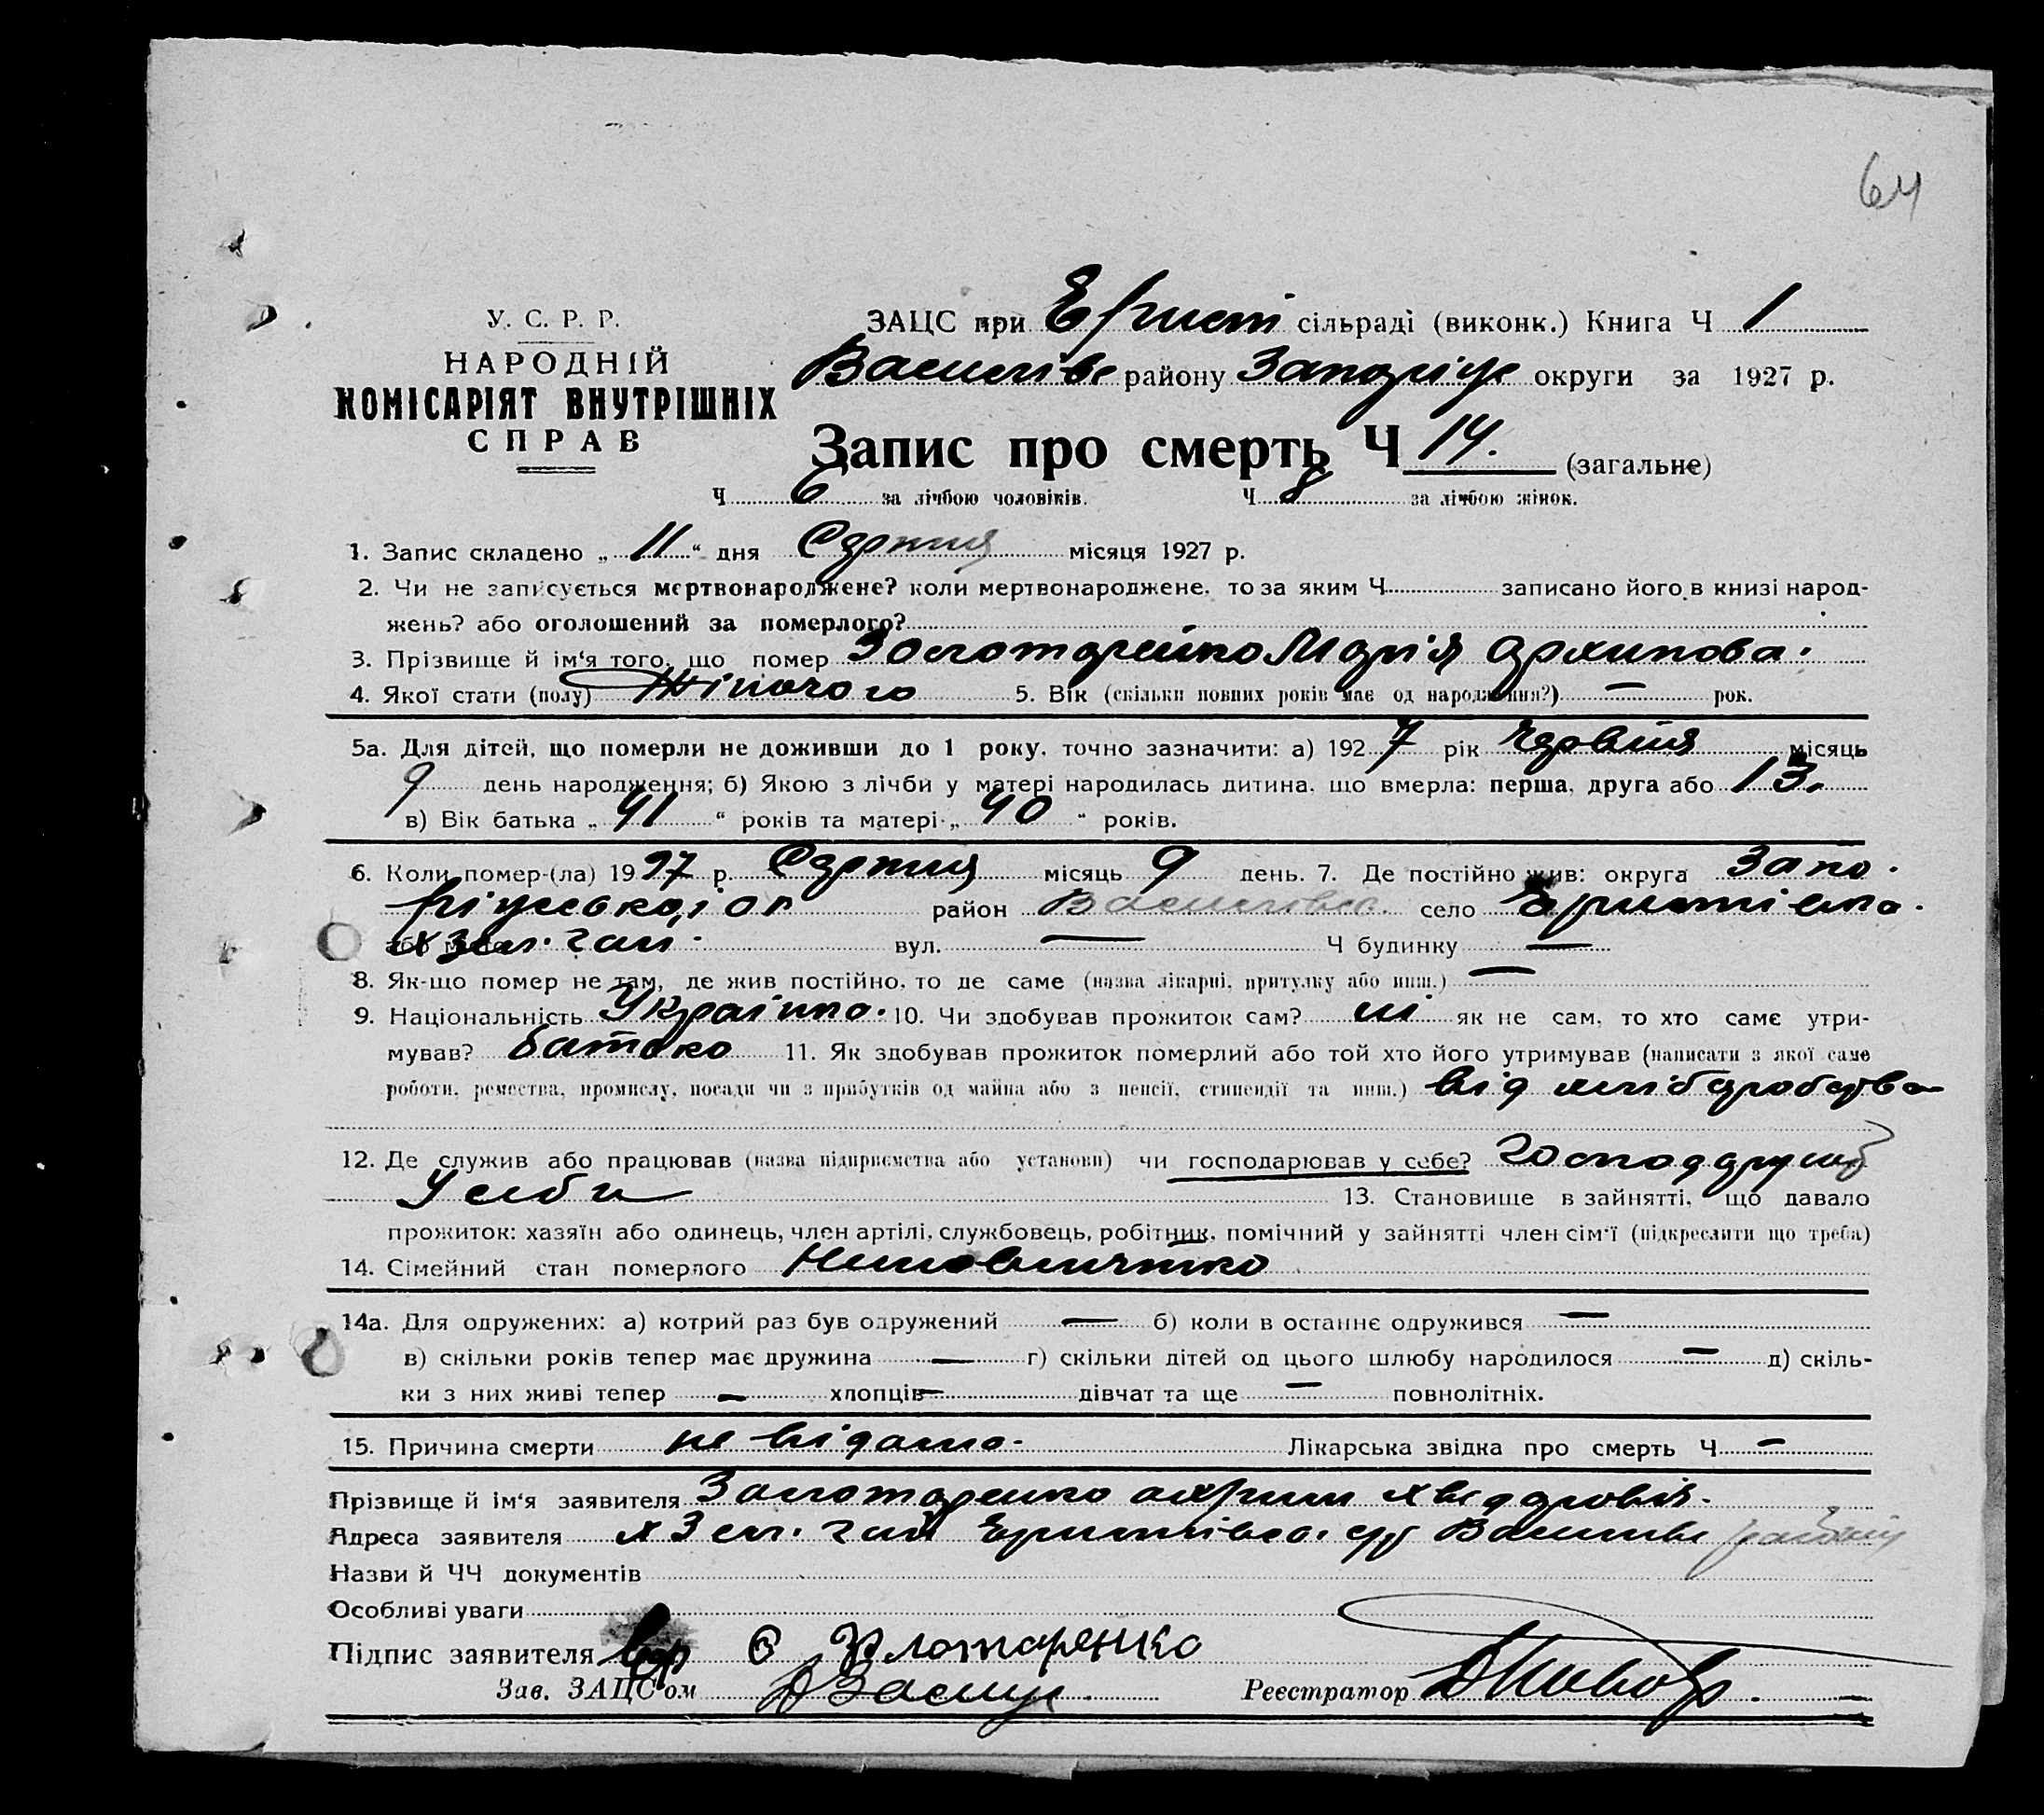 64
У. С. Р. Р.
НАРОДНІЙ
КОМІСАРІЯТ ВНУТРІШНІХ
СПРАВ
ЗАЦС при сільраді (виконк.) Книга Ч 1
Василівс району Запоріж округи за 1927 р.
Запис про смерть Ч 14. (загальне)
Ч 6 за лічбою чоловіків. Ч 8 за лічбою жінок.
1. Запис складено „ 11 “ дня Серпня місяця 1927 р.
2. Чи не записується мертвонароджене? коли мертвонароджене, то за яким Ч записано його в книзі народ-
жень? або оголошений за померлого?
3. Прізвище й ім‘я того, що помер Золотаренко Марія Архипова.
4. Якої стати (полу) Жіночого 5. Вік (скільки повних років має од народження?) — рок.
5а. Для дітей, що померли не доживши до 1 року, точно зазначити: а) 1927 рік Червня місяць
9 день народження; б) Якою з лічби у матері народилась дитина, що вмерла: перша, друга або 13.
в) Вік батька „ 41 “ років та матері „ 40 “ років.
6. Коли помер-(ла) 1927 р. Серпня місяць 9 день. 7. Де постійно жив: округа Запо-
ріжської ок район Василівсь село
або місто вул. — Ч будинку —
8. Як-що помер не там, де жив постійно, то де саме (назва лікарні, притулку або инш.) —
9. Національність Українка. 10. Чи здобував прожиток сам? ні як не сам, то хто саме утри-
мував? батько 11. Як здобував прожиток померлий або той хто його утримував (написати з якої саме
роботи, ремества, промислу, посади чи з прибутків од майна або з пенсії, стипендії та инш.) від хліборобства
12. Де служив або працював (назва підприємства або установи) чи господарював у себе?
У себе 13. Становище в зайнятті, що давало
прожиток: хазяїн або одинець, член артілі, службовець, робітник, помічний у зайнятті член сім‘ї (підкреслити що треба)
14. Сімейний стан померлого
14а. Для одружених: а) котрий раз був одружений — б) коли в останнє одружився —
в) скільки років тепер має дружина — г) скільки дітей од цього шлюбу народилося — д) скіль-
ки з них живі тепер — хлопців — дівчат та ще — повнолітніх.
15. Причина смерти не відомо. Лікарська звідка про смерть Ч —
Прізвище й ім‘я заявителя Золотаренко
Адреса заявителя х Зел. Гай
Назви й ЧЧ документів
Особливі уваги
Підпис заявителя Золотаренко
Зав. ЗАЦС‘ом
Реєстратор